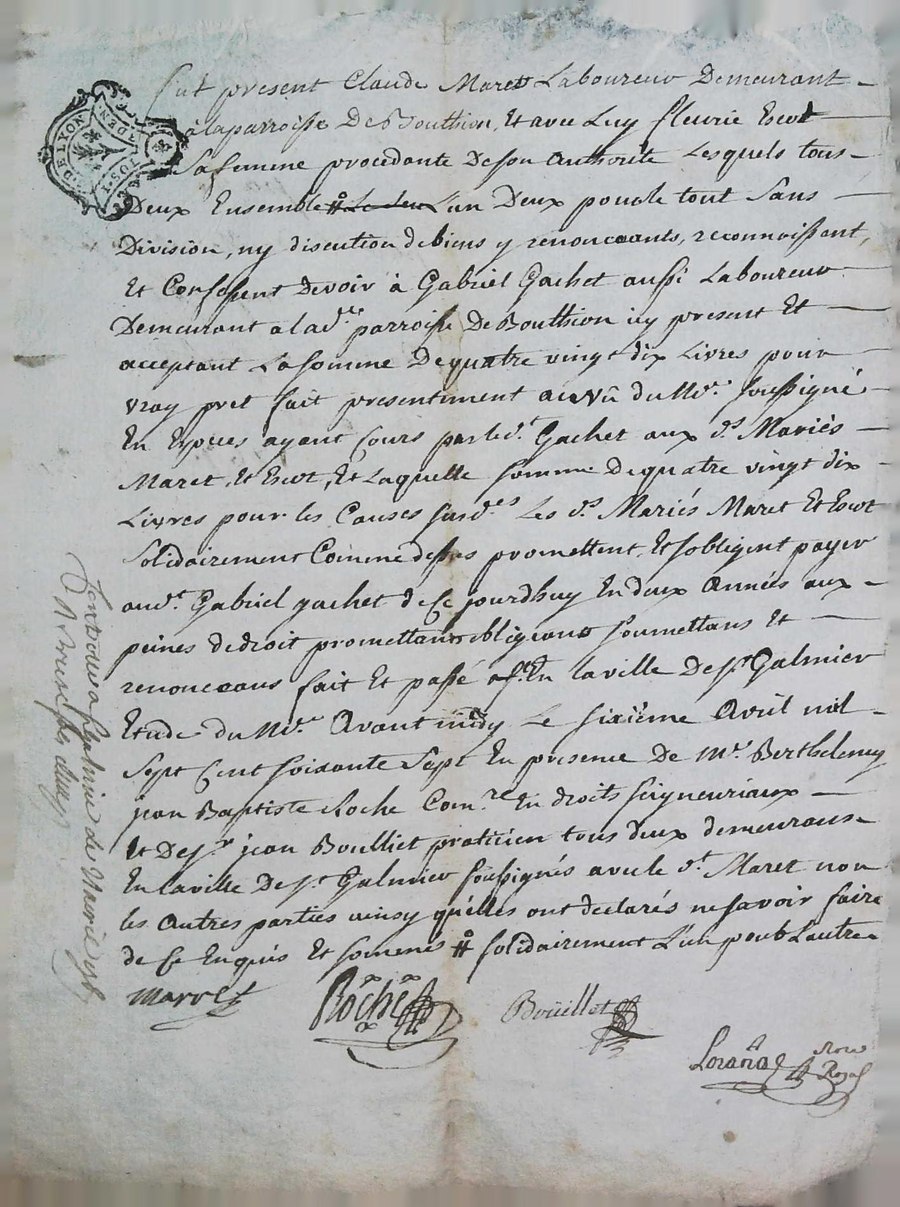 DE LYON
IDEN.
TOST
fut present Claude Maret Laboureur Demeurant
a laparroisse De Bouthion, Et avec Luy fleurie Escot
Safemme procedante Deson Authorité Lesquels tous
Deux Ensemble # L'un Deux pour le tout Sans
Division, ny discution debiens y renonceants, reconnoissent,
Et Confessent devoir à Gabriel Gachet aussi Laboureur
Demeurant a lad.e parroisse De Bouthion icy present Et
acceptant Lasomme Dequatre vingt dix Livres pour
vray pret fait presentement auvû du No.re soussigné
En Especes ayant Cours par led.t Gachet aux d.s Mariés
Maret, Et Escot, Et Laquelle somme de quatre vingt dix
Livres pour les Causes susd.es Les d.s Mariés Maret Et Escot
Solidairement Comme dessus promettent, Et sobligent payer
aud.t Gabriel gachet de Ce jourdhuy En deux Années aux
peines dedroit promettans obligeans soumettans Et
renonceans fait Et passé En laville De S.t Galmier
Etude du No.re Avant midy Le sixième Avril mil
Sept Cent soixante Sept En presence De m.e Berthelemy
jean Baptiste Roche Com.re En droits seigneuriaux
Et De S.r jean Boulliet praticien tous deux demeurans
En laville De S.t Galmier soussignés avec le d.t Maret non
les Autres parties ainsy qu'elles ont declarés nesavoir faire
de Ce Enquis Et sommés # solidairement L'un pour Lautre
maret
Roche
Boüillet
No.re
Royal